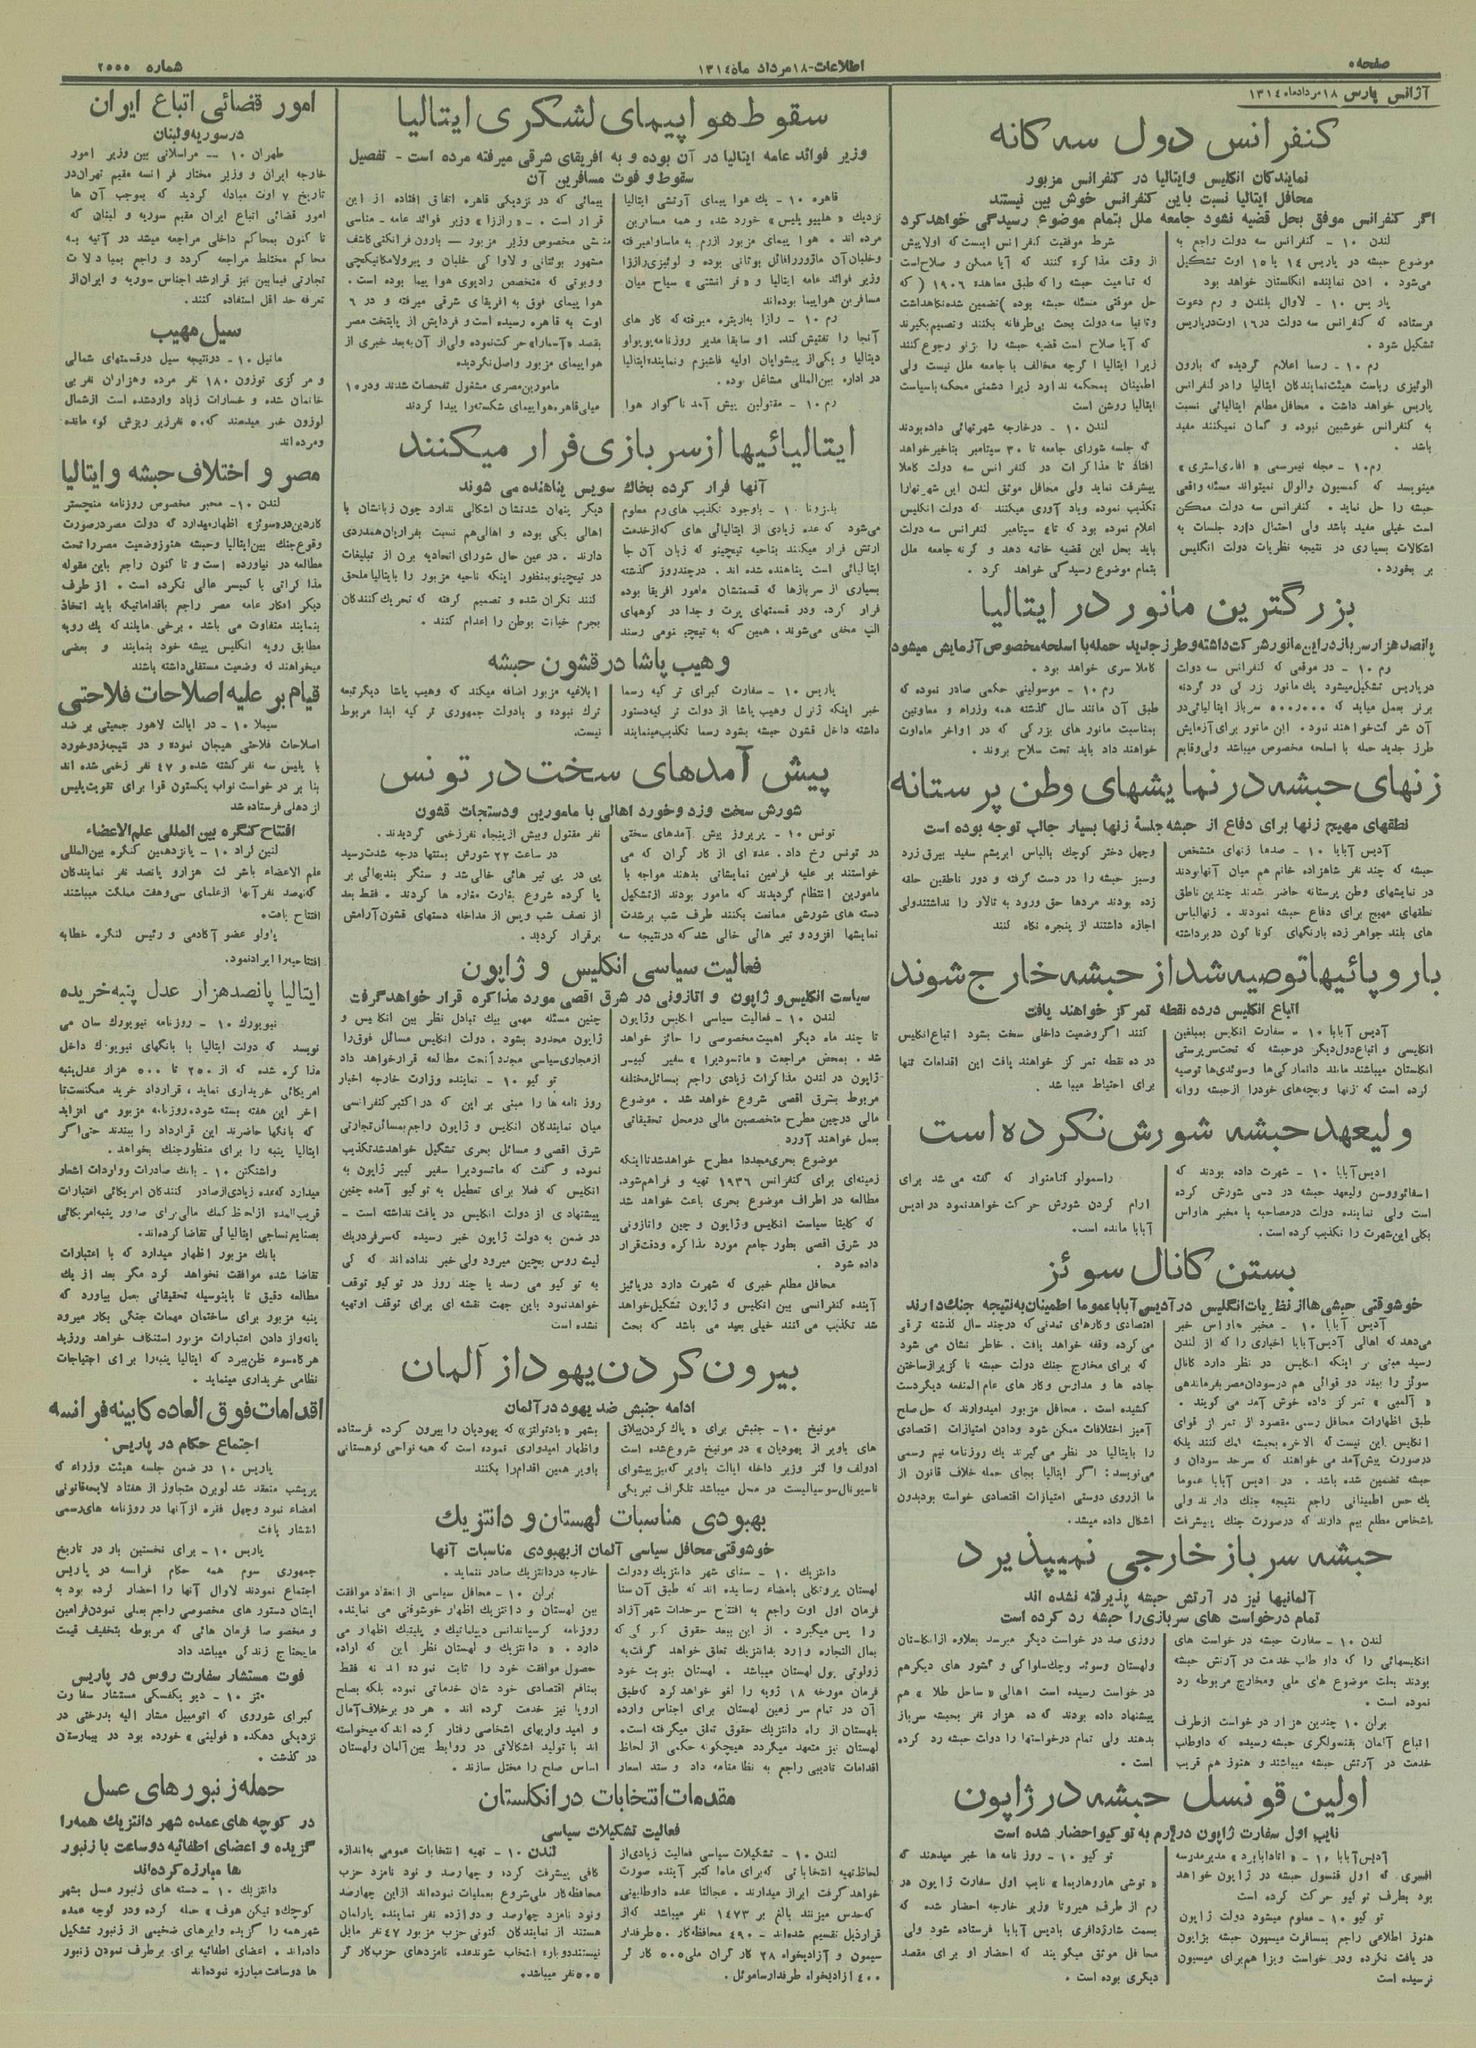 صفحه ۵
اطلاعات-۱۸ مرداد ماه ۱۳۱۴
شماره ۲۰۰۰
آژانس پارس ۱۸ مرداد ماه ۱۳۱۴
کنفرانس دول سه گانه
نمایندگان انگلیس وایتالیا در کنفرانس مزبور
محافل ایتالیا نسبت باین کنفرانس خوش بین نیستند
اگر کنفرانس موفق بحل قضیه نشود جامعه ملل بتمام موضوع رسیدگی خواهد کرد
لندن ۱۰ - کنفرانس سه دولت راجع به
موضوع حبشه در پاریس ۱۴ یا ۱۵ اوت تشکیل
میشود . ادن نماینده انگلستان خواهد بود
پاریس ۱۰ - لاوال بلندن و رم دعوت
فرستاده که کنفرانس سه دولت در ۱۶ اوت درپاریس
تشکیل شود .
رم ۱۰ - رسما اعلام گردید که بارون
الوئیزی ریاست هیئت نمایندگان ایتالیا را در کنفرانس
پاریس خواهد داشت . محافل مطلع ایتالیائی نسبت
به کنفرانس خوشبین نبوده و گمان نمیکنند مفید
باشد .
رم ۱۰ - مجله نیمرسمی « افاری استری »
مینویسد که کمسیون والوال نمیتواند مسئله واقعی
حبشه را حل نماید . کنفرانس سه دولت ممکن
است خیلی مفید باشد ولی احتمال دارد جلسات به
اشکالات بسیاری در نتیجه نظریات دولت انگلیس
بر بخورد .
شرط موفقیت کنفرانس اینست که اولا پیش
از وقت مذاکره کنند که آیا ممکن و صلاح است
که تمامیت حبشه را که طبق معاهده ۱۹۰۶ ( که
حل موقتی مسئله حبشه بوده ) تضمین شده نگاهداشت
وثانیا سه دولت بحث بی طرفانه بکنند وتصمیم بگیرند
که آیا صلاح است قضیه حبشه را بژنو رجوع کنند
زیرا ایتالیا اگرچه مخالف با جامعه ملل نیست ولی
اطمینان بمحکمه ندارد زیرا دشمنی محکمه باسیاست
ایتالیا روشن است
لندن ۱۰ - درخارجه شهرتهائی داده بودند
که جلسه شورای جامعه تا ۳۰ سپتامبر بتاخیر خواهد
افتاد تا مذاکرات در کنفرانس سه دولت کاملا
پیشرفت نماید ولی محافل موثق لندن این شهرتها را
تکذیب نموده ویاد آوری میکنند که دولت انگلیس
اعلام نموده بود که تا ۴ سپتامبر کنفرانس سه دولت
باید بحل این قضیه خاتمه دهد و گرنه جامعه ملل
بتمام موضوع رسیدگی خواهد کرد .
بزرگترین مانور در ایتالیا
پانصد هزار سرباز در این مانور شرکت داشته وطرز جدید حمله با اسلحه مخصوص آزمایش میشود
رم ۱۰ - در موقعی که کنفرانس سه دولت
در پاریس تشکیل میشود یک مانور بزرگی در گردنه
برنر بعمل میاید که ۵۰۰۰۰۰ سرباز ایتالیائی در
آن شرکت خواهند نمود . این مانور برای آزمایش
طرز جدید حمله با اسلحه مخصوص میباشد ولی وقایع
کاملا سری خواهد بود .
رم ۱۰ - موسولینی حکمی صادر نموده که
طبق آن مانند سال گذشته همه وزراء و معاونین
بمناسبت مانور های بزرگی که در اواخر ماه اوت
خواهند داد باید تحت سلاح بروند .
زنهای حبشه در نمایشهای وطن پرستانه
نطقهای مهیج زنها برای دفاع از حبشه جلسهٔ زنها بسیار جالب توجه بوده است
آدیس آبابا ۱۰ - صدها زنهای متشخص
حبشه که چند نفر شاهزاده خانم هم میان آنها بودند
در نمایشهای وطن پرستانه حاضر شدند چندین ناطق
نطقهای مهیج برای دفاع حبشه نمودند . زنها لباس
های بلند جواهر زده بارنگهای گوناگون دربرداشته
وچهل دختر کوچک بالباس ابریشم سفید بیرق زرد
وسبز حبشه را در دست گرفته و دور ناطقین حلقه
زده بودند مردها حق ورود به تالار را نداشتند ولی
اجازه داشتند از پنجره نگاه کنند
باروپائیها توصیه شد از حبشه خارج شوند
اتباع انگلیس درده نقطه تمرکز خواهند یافت
آدیس آبابا ۱۰ - سفارت انگلیس بمبلغین
انگلیسی و اتباع دول دیگر در حبشه که تحت سرپرستی
انگلستان میباشند مانند دانمارکی ها وسوئدی ها توصیه
کرده است که زنها وبچه های خود را از حبشه روانه
کنند اگر وضعیت داخلی سخت بشود اتباع انگلیس
در ده نقطه تمرکز خواهند یافت این اقدامات تنها
برای احتیاط میباشد .
ولیعهد حبشه شورش نکرده است
ادیس آبابا ۱۰ - شهرت داده بودند که
اسفائوسن ولیعهد حبشه در دسی شورش کرده
است ولی نماینده دولت در مصاحبه با مخبر هاواس
بکلی این شهرت را تکذیب کرده است .
راسمولو گتامنوار که گفته می شد برای
ارام کردن شورش حرکت خواهد نمود در ادیس
آبابا مانده است .
بستن کانال سوئز
خوشوقتی حبشی ها از نظریات انگلیس در آدیس آبابا عموما اطمینان به نتیجه جنک دارند
آدیس آبابا ۱۰ - مخبر هاواس خبر
میدهد که اهالی آدیس آبابا اخباری را که از لندن
رسید مبنی بر اینکه انگلیس در نظر دارد کانال
سوئز را ببندد و قوائی هم در سودان مصر بفرماندهی
« آلمبی » تمرکز داده خوش آمد می گویند .
طبق اظهارات محافل رسمی مقصود از تمرکز قوای
انگلیس این نیست که بالاخره بحبشه کمک کنند بلکه
درصورت پیش آمد می خواهند که سرحد سودان و
حبشه تضمین شده باشد . در ادیس آبابا عموما
یک حس اطمینانی راجع بنتیجه جنک دارند ولی
اشخاص مطلع بیم دارند که درصورت جنک پیشرفت
اقتصادی وکارهای تمدنی که در چند سال گذشته ترقی
می کرده وقفه خواهد یافت . خاطر نشان می شود
که برای مخارج جنک دولت حبشه ناگزیر از ساختن
جاده ها و مدارس وکار های عام المنفعه دیگر دست
کشیده است . محافل مزبور امیدوارند که حل صلح
آمیز اختلافات ممکن شود ودادن امتیازات اقتصادی
را بایتالیا در نظر می گیرند یک روزنامه نیم رسمی
می نویسد : اگر ایتالیا بجای حمله خلاف قانون از
ما از روی دوستی امتیازات اقتصادی خواسته بود بدون
اشکال داده میشد .
حبشه سرباز خارجی نمیپذیرد
آلمانیها نیز در آرتش حبشه پذیرفته نشده اند
تمام درخواست های سربازی را حبشه رد کرده است
لندن ۱۰ - سفارت حبشه درخواست های
انگلیسهائی را که داوطلب خدمت در آرتش حبشه
بودند بعلت موضوع های ملی ومخارج مربوطه رد
نموده است .
برلن ۱۰ چندین هزار درخواست ازطرف
اتباع آلمان بقنسولگری حبشه رسیده که داوطلب
خدمت در آرتش حبشه میباشند و هنوز هم قریب
روزی صد درخواست دیگر میرسد بعلاوه از انگلستان
ولهستان وسوئد وچک سلواکی و کشور های دیگر هم
درخواست رسیده است اهالی « ساحل طلا » هم
پیشنهاد داده بودند که ده هزار نفر بحبشه سرباز
بدهند ولی تمام درخواستها را دولت حبشه رد کرده
است .
اولین قونسل حبشه در ژاپون
نایب اول سفارت ژاپون در رم به توکیو احضار شده است
آدیس آبابا ۱۰ - « اتادابابرد » مدیر مدرسه
افسری که اول قنسول حبشه در ژاپون خواهد
بود بطرف توکیو حرکت کرده است
توکیو ۱۰ - معلوم میشود دولت ژاپون
هنوز اطلاعی راجع بمسافرت میسیون حبشه بژاپون
دریافت نکرده ودرخواست ویزا هم برای میسیون
نرسیده است
توکیو ۱۰ - روزنامه ها خبر میدهند که
« توشی هاروهاریما » نایب اولی سفارت ژاپون در
رم از طرف هیروتا وزیر خارجه احضار شده که
بسمت شارژدافری بادیس آبابا فرستاده شود ولی
محافل موثق میگویند که احضار او برای مقصد
دیگری بوده است .
سقوط هواپیمای لشکری ایتالیا
وزیر فوائد عامه ایتالیا در آن بوده و به افریقای شرقی میرفته مرده است - تفصیل
سقوط و فوت مسافرین آن
قاهره ۱۰ - یک هوا پیمای آرتشی ایتالیا
نزدیک « هلیپو پلیس » خورد شده و همه مسافرین
مرده اند . هوا پیمای مزبور ازرم به ماساوا میرفته
وخلبان آن ماژور رافائل بوتانی بوده و لوئیزی رازا
وزیر فوائد عامه ایتالیا و « فرانشتی » سیاح میان
مسافرین هواپیما بوده اند
رم ۱۰ - رازا به اریتره میرفته که کار های
آنجا را تفتیش کند. او سابقا مدیر روزنامه پوپولو
دیتالیا و یکی از پیشوایان اولیه فاشیزم و نماینده ایتالیا
در اداره بین المللی مشاغل بوده .
رم ۱۰ - مقتولین پیش آمد ناگوار هوا
پیمائی که در نزدیکی قاهره اتفاق افتاده از این
قرار است . - « رازا » وزیر فوائد عامه - مناسی
منشی مخصوص وزیر مزبور - بارون فرانکتی کاشف
مشهور بوتتانی و لاوا کی خلبان و پیرولا مکانیکچی
ووبوتی که متخصص رادیوی هوا پیما بوده است .
هوا پیمای فوق به آفریقای شرقی میرفته و در ۶
اوت به قاهره رسیده است و فردایش از پایتخت مصر
بقصد « آسمارا » حرکت نموده ولی از آن به بعد خبری از
هوا پیمای مزبور واصل نگردیده
مامورین مصری مشغول تفحصات شدند ودر ۱۰
میلی قاهره هوا پیمای شکسته را پیدا کردند
ایتالیائیها از سربازی فرار میکنند
آنها فرار کرده بخاک سویس پناهنده می شوند
بلزونا ۱۰ - باوجود تکذیب های رم معلوم
می شود که عده زیادی از ایتالیائی های که از خدمت
ارتش فرار میکنند بناحیه تیچینو که زبان آن جا
ایتالیائی است پناهنده شده اند . درچند روز گذشته
بسیاری از سرباز ها که قسمتشان مامور افریقا بوده
فرار کرد. ودر قسمتهای پرت و جدا در کوههای
الپ مخفی می شوند. همین که به تیچینو می رسند
دیگر پنهان شدنشان اشکالی ندارد چون زبانشان با
اهالی یکی بوده و اهالی هم نسبت بفراریان همدردی
دارند . در عین حال شورای اتحادیه برن از تبلیغات
در تیچینو بمنظور اینکه ناحیه مزبور را بایتالیا ملحق
کنند نگران شده و تصمیم گرفته که تحریک کنندگان
بجرم خیانت بوطن را اعدام کنند .
وهیب پاشا در قشون حبشه
پاریس ۱۰ - سفارت کبرای ترکیه رسما
خبر اینکه ژنرال وهیب پاشا از دولت ترکیه دستور
داشته داخل قشون حبشه بشود رسما تکذیب مینمایند
ابلاغیه مزبور اضافه میکند که وهیب پاشا دیگر تبعه
ترک نبوده و بادولت جمهوری ترکیه ابدا مربوط
نیست.
پیش آمدهای سخت در تونس
شورش سخت وزد وخورد اهالی با مامورین ودستجات قشون
تونس ۱۰ - پریروز پیش آمدهای سختی
در تونس رخ داد. عده ای از کارگران که می
خواستند بر علیه فرامین نمایشاتی بدهند مواجه با
مامورین انتظام گردیدند که مامور بودند از تشکیل
دسته های شورشی ممانعت بکنند طرف شب برشدت
نمایشها افزود و تیر هائی خالی شد که درنتیجه سه
نفر مقتول وبیش از پنجاه نفر زخمی گردیدند .
در ساعت ۲۲ شورش بمنتها درجه شدت رسید
پی در پی تیر هائی خالی شد و سنگر بندیهائی بر
پا کرده شروع بغارت مغازه ها کردند . فقط بعد
از نصف شب وپس از مداخله دستهای قشون آرامش
برقرار گردید.
فعالیت سیاسی انگلیس و ژاپون
سیاست انگلیس و ژاپون و اتازونی در شرق اقصی مورد مذاکره قرار خواهد گرفت
لندن ۱۰ - فعالیت سیاسی انگلیس وژاپون
تا چند ماه دیگر اهمیت مخصوصی را حائز خواهد
شد . بمحض مراجعت « ماتسودیرا » سفیر کبیر
ژاپون در لندن مذاکرات زیادی راجع بمسائل مختلفه
مربوط بشرق اقصی شروع خواهد شد . موضوع
مالی درچین مطرح متخصصین مالی درمحل تحقیقاتی
بعمل خواهند آورد
موضوع بحری مجددا مطرح خواهد شد تا اینکه
زمینه ای برای کنفرانس ۱۹۳۶ تهیه و فراهم شود.
مطالعه در اطراف موضوع بحری باعث خواهد شد
که کلیتا سیاست انگلیس وژاپون و چین واتازونی
در شرق اقصی بطور جامع مورد مذاکره ودقت قرار
داده شود .
محافل مطلع خبری که شهرت دارد درپائیز
آینده کنفرانسی بین انگلیس و ژاپون تشکیل خواهد
شد تکذیب می کنند خیلی بعید می باشد که بحث
چنین مسئله مهمی بیک تبادل نظر بین انگلیس و
ژاپون محدود بشود . دولت انگلیس مسائل فوق را
از مجاری سیاسی مجددا تحت مطالعه قرار خواهد داد
توکیو ۱۰ - نماینده وزارت خارجه اخبار
روزنامه ها را مبنی بر این که در اکتبر کنفرانسی
میان نمایندگان انگلیس و ژاپون راجع بمسائل تجارتی
شرق اقصی و مسائل بحری تشکیل خواهد شد تکذیب
نموده و گفت که ماتسودیرا سفیر کبیر ژاپون به
انگلیس که فعلا برای تعطیل به توکیو آمده چنین
پیشنهادی از دولت انگلیس دریافت نداشته است -
در ضمن به دولت ژاپون خبر رسیده که سرفردریک
لیث روس بچین میرود ولی خبر نداده اند که کی
به توکیو می رسد یا چند روز در توکیو توقف
خواهد نمود باین جهت نقشه ای برای توقف او تهیه
نشده است
بیرون کردن یهود از آلمان
ادامه جنبش ضد یهود در آلمان
مونیخ ۱۰ - جنبش برای « پاک کردن ییلاق
های باویر از یهودیان » در مونیخ شروع شده است
ادولف واگنر وزیر داخله ایالت باویر که نیز پیشوای
ناسیونال سوسیالیست در محل میباشد تلگراف تبریکی
بشهر « بادتولتز » که یهودیان را بیرون کرده فرستاده
واظهار امیدواری نموده است که همه نواحی کوهستانی
باویر همین اقدام را بکنند
بهبودی مناسبات لهستان و دانتزیک
خوشوقتی محافل سیاسی آلمان از بهبودی مناسبات آنها
دانتزیک ۱۰ - سنای شهر دانتزیک ودولت
لهستان پروتکلی بامضاء رسانیده اند که طبق آن سنا
فرمان اول اوت راجع به افتتاح سرحدات شهر آزاد
را پس میگیرد . از این ببعد حقوق گمرکی که
بمال التجاره وارد بدانتزیک تعلق خواهد گرفت به
زولوتی پول لهستان میباشد . لهستان بنوبت خود
فرمان مورخه ۱۸ ژویه را لغو خواهد کرد که طبق
آن در تمام سر زمین لهستان برای اجناس وارده
بلهستان از راه دانتزیک حقوق تعلق میگرفته است.
لهستان نیز متعهد میگردد هیچگونه حکمی از لحاظ
اقدامات تادیبی راجع به نظامنامه داد و ستد اسعار
خارجه در دانتزیک صادر ننماید .
برلن ۱۰ - محافل سیاسی از انعقاد موافقت
بین لهستان و دانتزیک اظهار خوشوقتی می نمایند
روزنامه کرسپاندانس دیپلماتیک و پلیتیک اظهار می
دارد . « دانتزیک و لهستان نظر این که اراده
حصول موافقت خود را ثابت نموده اند نه فقط
بمنافع اقتصادی خود شان خدماتی نموده بلکه بصلح
اروپا نیز خدمت کرده اند . هر دو برخلاف آمال
و امید واریهای اشخاصی رفتار کرده اند که میخواسته
اند با تولید اشکالاتی در روابط بین آلمان ولهستان
اساس صلح را مختل سازند .
مقدمات انتخابات در انگلستان
فعالیت تشکیلات سیاسی
لندن ۱۰ - تشکیلات سیاسی فعالیت زیادی از
لحاظ تهیه انتخاباتی که برای ماه اکتبر آینده صورت
خواهد گرفت ابراز میدارند . عجالتا عده داوطلبینی
که حدس میزنند بالغ بر ۱۴۷۳ نفر میباشد که از
قرار ذیل تقسیم شده اند - ۴۹۰ محافظه کار ۵۰ طرفدار
سیمون و آزادیخواه ۲۸ کارگران ملی ۵۰۵ کارگر
۴۰۰ ازادیخواه طرفدار ساموئل .
لندن ۱۰ - تهیه انتخابات عمومی به اندازه
کافی پیشرفت کرده و چهارصد و نود نامزد حزب
محافظه کار ملی شروع بعملیات نموده اند از این چهارصد
ونود نامزد چهارصد و دوازده نفر نماینده پارلمان
هستند از نمایندگان کنونی حزب مزبور ۴۷ نفر مایل
نیستند دوباره انتخاب شوند عده نامزدهای حزب کارگر
۵۰۵ نفر میباشد.
امور قضائی اتباع ایران
در سوریه و لبنان
طهران ۱۰ - مراسلاتی بین وزیر امور
خارجه ایران و وزیر مختار فرانسه مقیم تهران در
تاریخ ۷ اوت مبادله گردید که بموجب آن ها
امور قضائی اتباع ایران مقیم سوریه و لبنان که
تا کنون بمحاکم داخلی مراجعه میشد در آتیه به
محاکم مختلط مراجعه گردد و راجع بمبادلات
تجارتی فیمابین نیز قرار شد اجناس سوریه و ایران از
تعرفه حد اقل استفاده کنند .
سیل مهیب
مانیل ۱۰ - درنتیجه سیل در قسمتهای شمالی
و مرکزی توزون ۱۸۰ نفر مرده وهزاران نفر بی
خانمان شده و خسارات زیاد وارد شده است از شمال
لوزون خبر میدهند که ۵۰ نفر زیر ریزش کوه مانده
ومرده اند
مصر و اختلاف حبشه و ایتالیا
لندن ۱۰ - مخبر مخصوص روزنامه منچستر
کاردین در « سوئز » اظهار میدارد که دولت مصر درصورت
وقوع جنک بین ایتالیا وحبشه هنوز وضعیت مصر را تحت
مطالعه در نیاورده است و تا کنون راجع باین مقوله
مذاکراتی با کمیسر عالی نکرده است . از طرف
دیگر افکار عامه مصر راجع باقداماتیکه باید اتخاذ
بنمایند متفاوت می باشد . برخی مایلند که یک رویه
مطابق رویه انگلیس پیشه خود بنمایند و بعضی
میخواهند که وضعیت مستقلی داشته باشند
قیام بر علیه اصلاحات فلاحتی
سیملا ۱۰ - در ایالت لاهور جمعیتی بر ضد
اصلاحات فلاحتی هیجان نموده و در نتیجه زدوخورد
با پلیس سه نفر کشته شده و ۴۷ نفر زخمی شده اند
بنا بر درخواست نواب یکستون قوا برای تقویت پلیس
از دهلی فرستاده شد
افتتاح کنگره بین المللی علم الاعضاء
لنین گراد ۱۰ - پانزدهمین کنگره بین المللی
علم الاعضاء باشرکت هزار و پانصد نفر نمایندگان
که نهصد نفر آنها از علمای سی و هفت مملکت میباشند
افتتاح یافت.
پاولو عضو آکادمی و رئیس کنگره خطابه
افتتاحیه را ایراد نمود.
ایتالیا پانصد هزار عدل پنبه خریده
نیویورک ۱۰ - روزنامه نیویورک سان می
نویسد که دولت ایتالیا با بانکهای نیویورک داخل
مذاکره شده که از ۲۵۰ تا ۵۰۰ هزار عدل پنبه
امریکائی خریداری نماید . قرارداد خرید ممکنست تا
آخر این هفته بسته شود. روزنامه مزبور می افزاید
که بانکها حاضرند این قرارداد را ببندند حتی اگر
ایتالیا پنبه را برای منظور جنک بخواهد.
واشنگتن ۱۰ - بانک صادرات وواردات اشعار
میدارد که عده زیادی از صادر کنندگان امریکائی اعتبارات
قریب المده از لحاظ کمک مالی برای صدور پنبه امریکائی
بصنایع نساجی ایتالیائی تقاضا کرده اند.
بانک مزبور اظهار میدارد که با اعتبارات
تقاضا شده موافقت نخواهد کرد مگر بعد از یک
مطالعه دقیق تا باینوسیله تحقیقاتی بعمل بیاورد که
پنبه مزبور برای ساختمان مهمات جنگی بکار میرود
یا نه و از دادن اعتبارات مزبور استنکاف خواهد ورزید
هرگاه سوء ظن ببرد که ایتالیا پنبه را برای احتیاجات
نظامی خریداری مینماید .
اقدامات فوق العاده کابینه فرانسه
اجتماع حکام در پاریس
پاریس ۱۰ در ضمن جلسه هیئت وزراء که
پریشب منعقد شد لوبرن متجاوز از هفتاد لایحه قانونی
امضاء نمود وچهل فقره از آنها در روزنامه های رسمی
انتشار یافت
پاریس ۱۰ - برای نخستین بار در تاریخ
جمهوری سوم همه حکام فرانسه در پاریس
اجتماع نمودند لاوال آنها را احضار کرده بود به
ایشان دستور های مخصوصی راجع بعملی نمودن فرامین
و مخصوصا فرمان هائی که مربوطه بتخفیف قیمت
مایحتاج زندگی میباشد داد
فوت مستشار سفارت روس در پاریس
متز ۱۰ - دیو یکفسکی مستشار سفارت
کبرای شوروی که اتومبیل مشار الیه بدرختی در
نزدیکی دهکده « فولینی » خورده بود در بیمارستان
در گذشت .
حمله زنبورهای عسل
در کوچه های عمده شهر دانتزیک همه را
گزیده و اعضای اطفائیه دوساعت با زنبور
ها مبارزه کرده اند
دانتزیک ۱۰ - دسته های زنبور عسل بشهر
کوچک « تیکن هوف » حمله کرده ودر کوچه عمده
شهر همه را گزیده وابرهای ضخیمی از زنبور تشکیل
داده اند . اعضای اطفائیه برای بر طرف نمودن زنبور
ها دوساعت مبارزه نموده اند